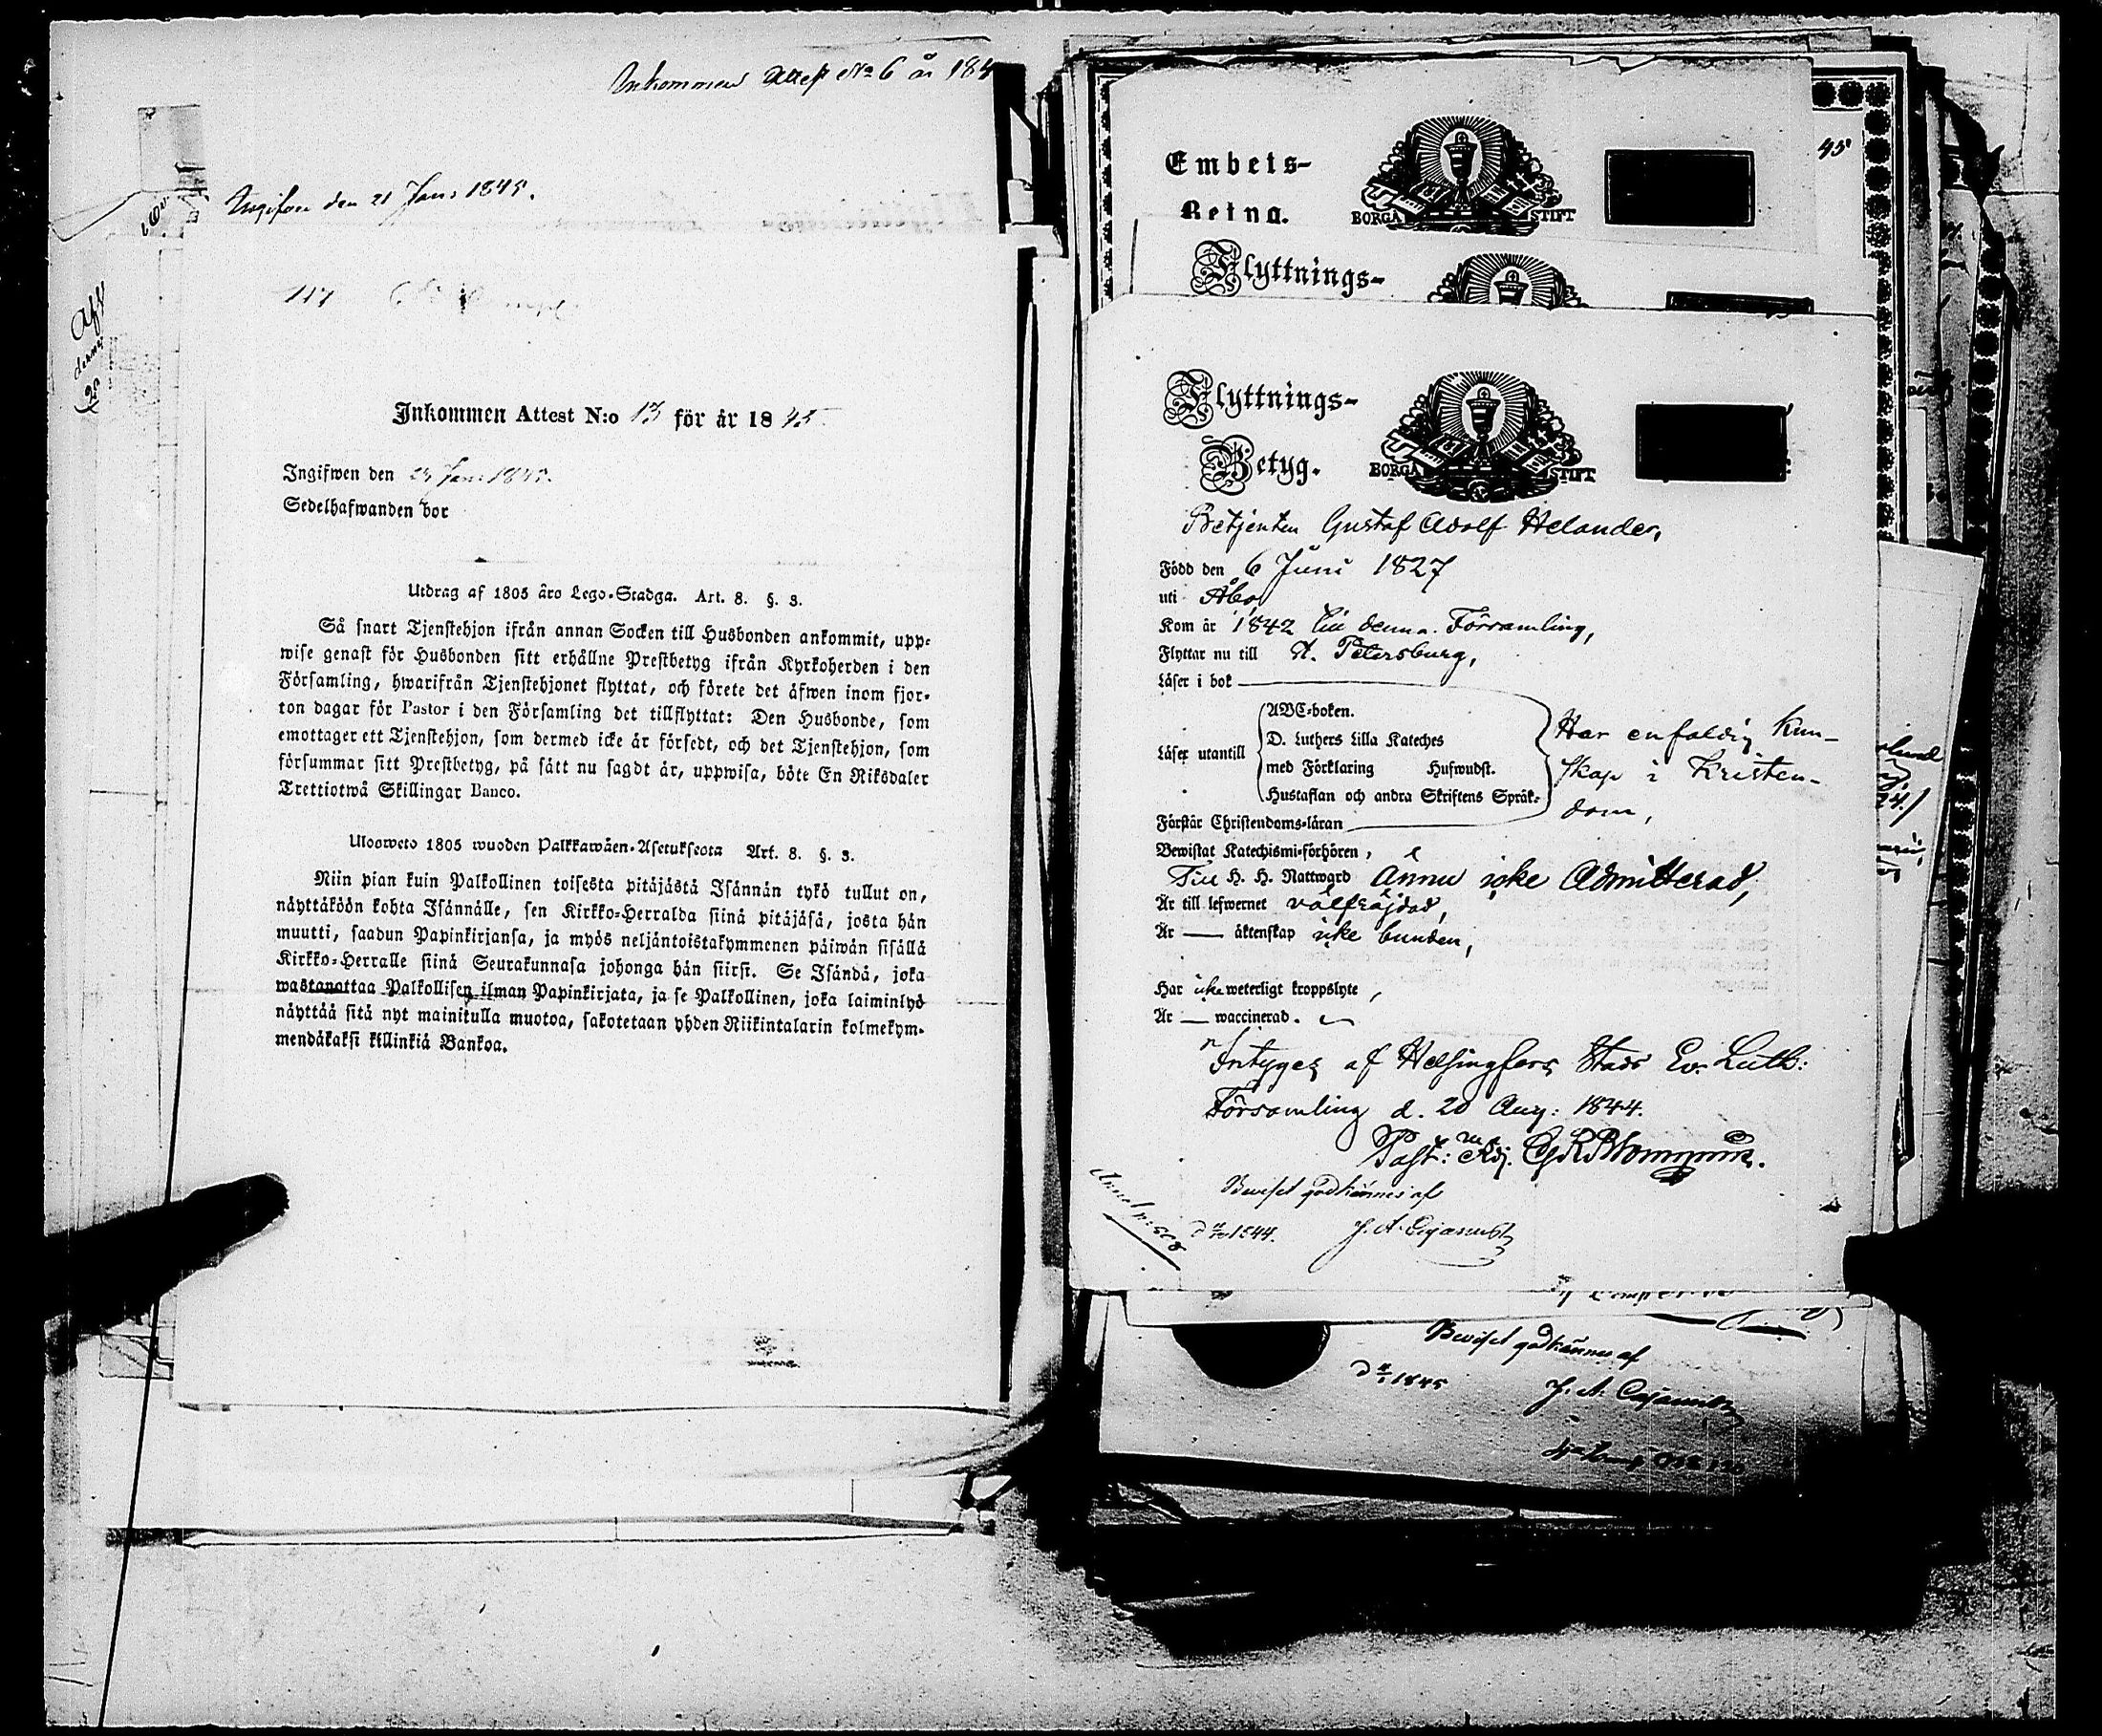 Inkommen Attest No 6 år 184
Ingifven den 21 Jan: 1845.
117
Inkommen Attest N:o 13 för år 1845
Ingifwen den 24 Jan: 1845.
Sedelhafwanden bor
Utdrag af 1805 års Lego-Stadga. Art. 8. §. 3.
Så snart Tjenstehjon ifrån annan Socken till Husbonden ankommit, upp-
wise genast för Husbonden sitt erhållne Prestbetyg ifrån Kyrkoherden i den
Församling, hwarifrån Tjenstehjonet flyttat, och förete det äfwen inom fjor-
ton dagar för Pastor i den Församling det tillflyttat: Den Husbonde, som
emottager ett Tjenstehjon, som dermed icke är försedt, och det Tjenstehjon, som
försummar sitt Prestbetyg, på sätt nu sagdt är, uppwisa, böte En Riksdaler
Trettiotwå Skillingar Banco.
Uloswéto 1805 wuoden Palkkawäen-Asetuksesta Art. 8. §. 3.
Niin pian kuin Palkollinen toisesta pitäjästä Isännän tykö tullut on,
näyttäköön kohta Isännälle, sen Kirkko-Herralda siinä pitäjäsä, josta hän
muutti, saadun Papinkirjansa, ja myös neljäntoistakymmenen päiwän sisällä
Kirkko-Herralle siinä Seurakunnasa johonga hän siirsi. Se Isändä, joka
wastanottaa Palkollisen ilman Papinkirjata, ja se Palkollinen, joka laiminlyö
näyttää sitä nyt mainitulla muotoa, sakotetaan yhden Riikintalarin kolmekym-
mendäkaksi killinkiä Bankoa.
45
Embets-
Retna.
BORGÅ STIFT
Flyttnings-
Flyttnings-
Betyg.
BORGÅ STIFT
Betjenten Gustaf Adolf Helander,
Född den 6 Juni 1827
uti Åbo
Kom år 1842 till denna Församling,
Flyttar nu till St. Petersburg,
Läser i bok
Läser utantill
ABC-boken.
D. Luthers Lilla Kateches
med Förklaring Hufwudst.
Hustaflan och andra Skriftens Språk.
Har enfaldig kun-
skap i Kristen-
dom,
Förstår Christendoms-läran
Bewistat Katechismi-förhören,
Till H. H. Nattward ännu icke Admitterad,
Är till lefwernet välfräjdad,
Är — äktenskap icke bunden,
Har icke weterligt kroppslyte,
Är — waccinerad.
Intygas af Helsingfors Stads Ev. Luth:
Församling d. 20 Aug: 1844.
Past: Adj.
Beviset godkännes af
1844. J. A. Cajanus
Beviset godkännes af
1845
J. A. Cajanus